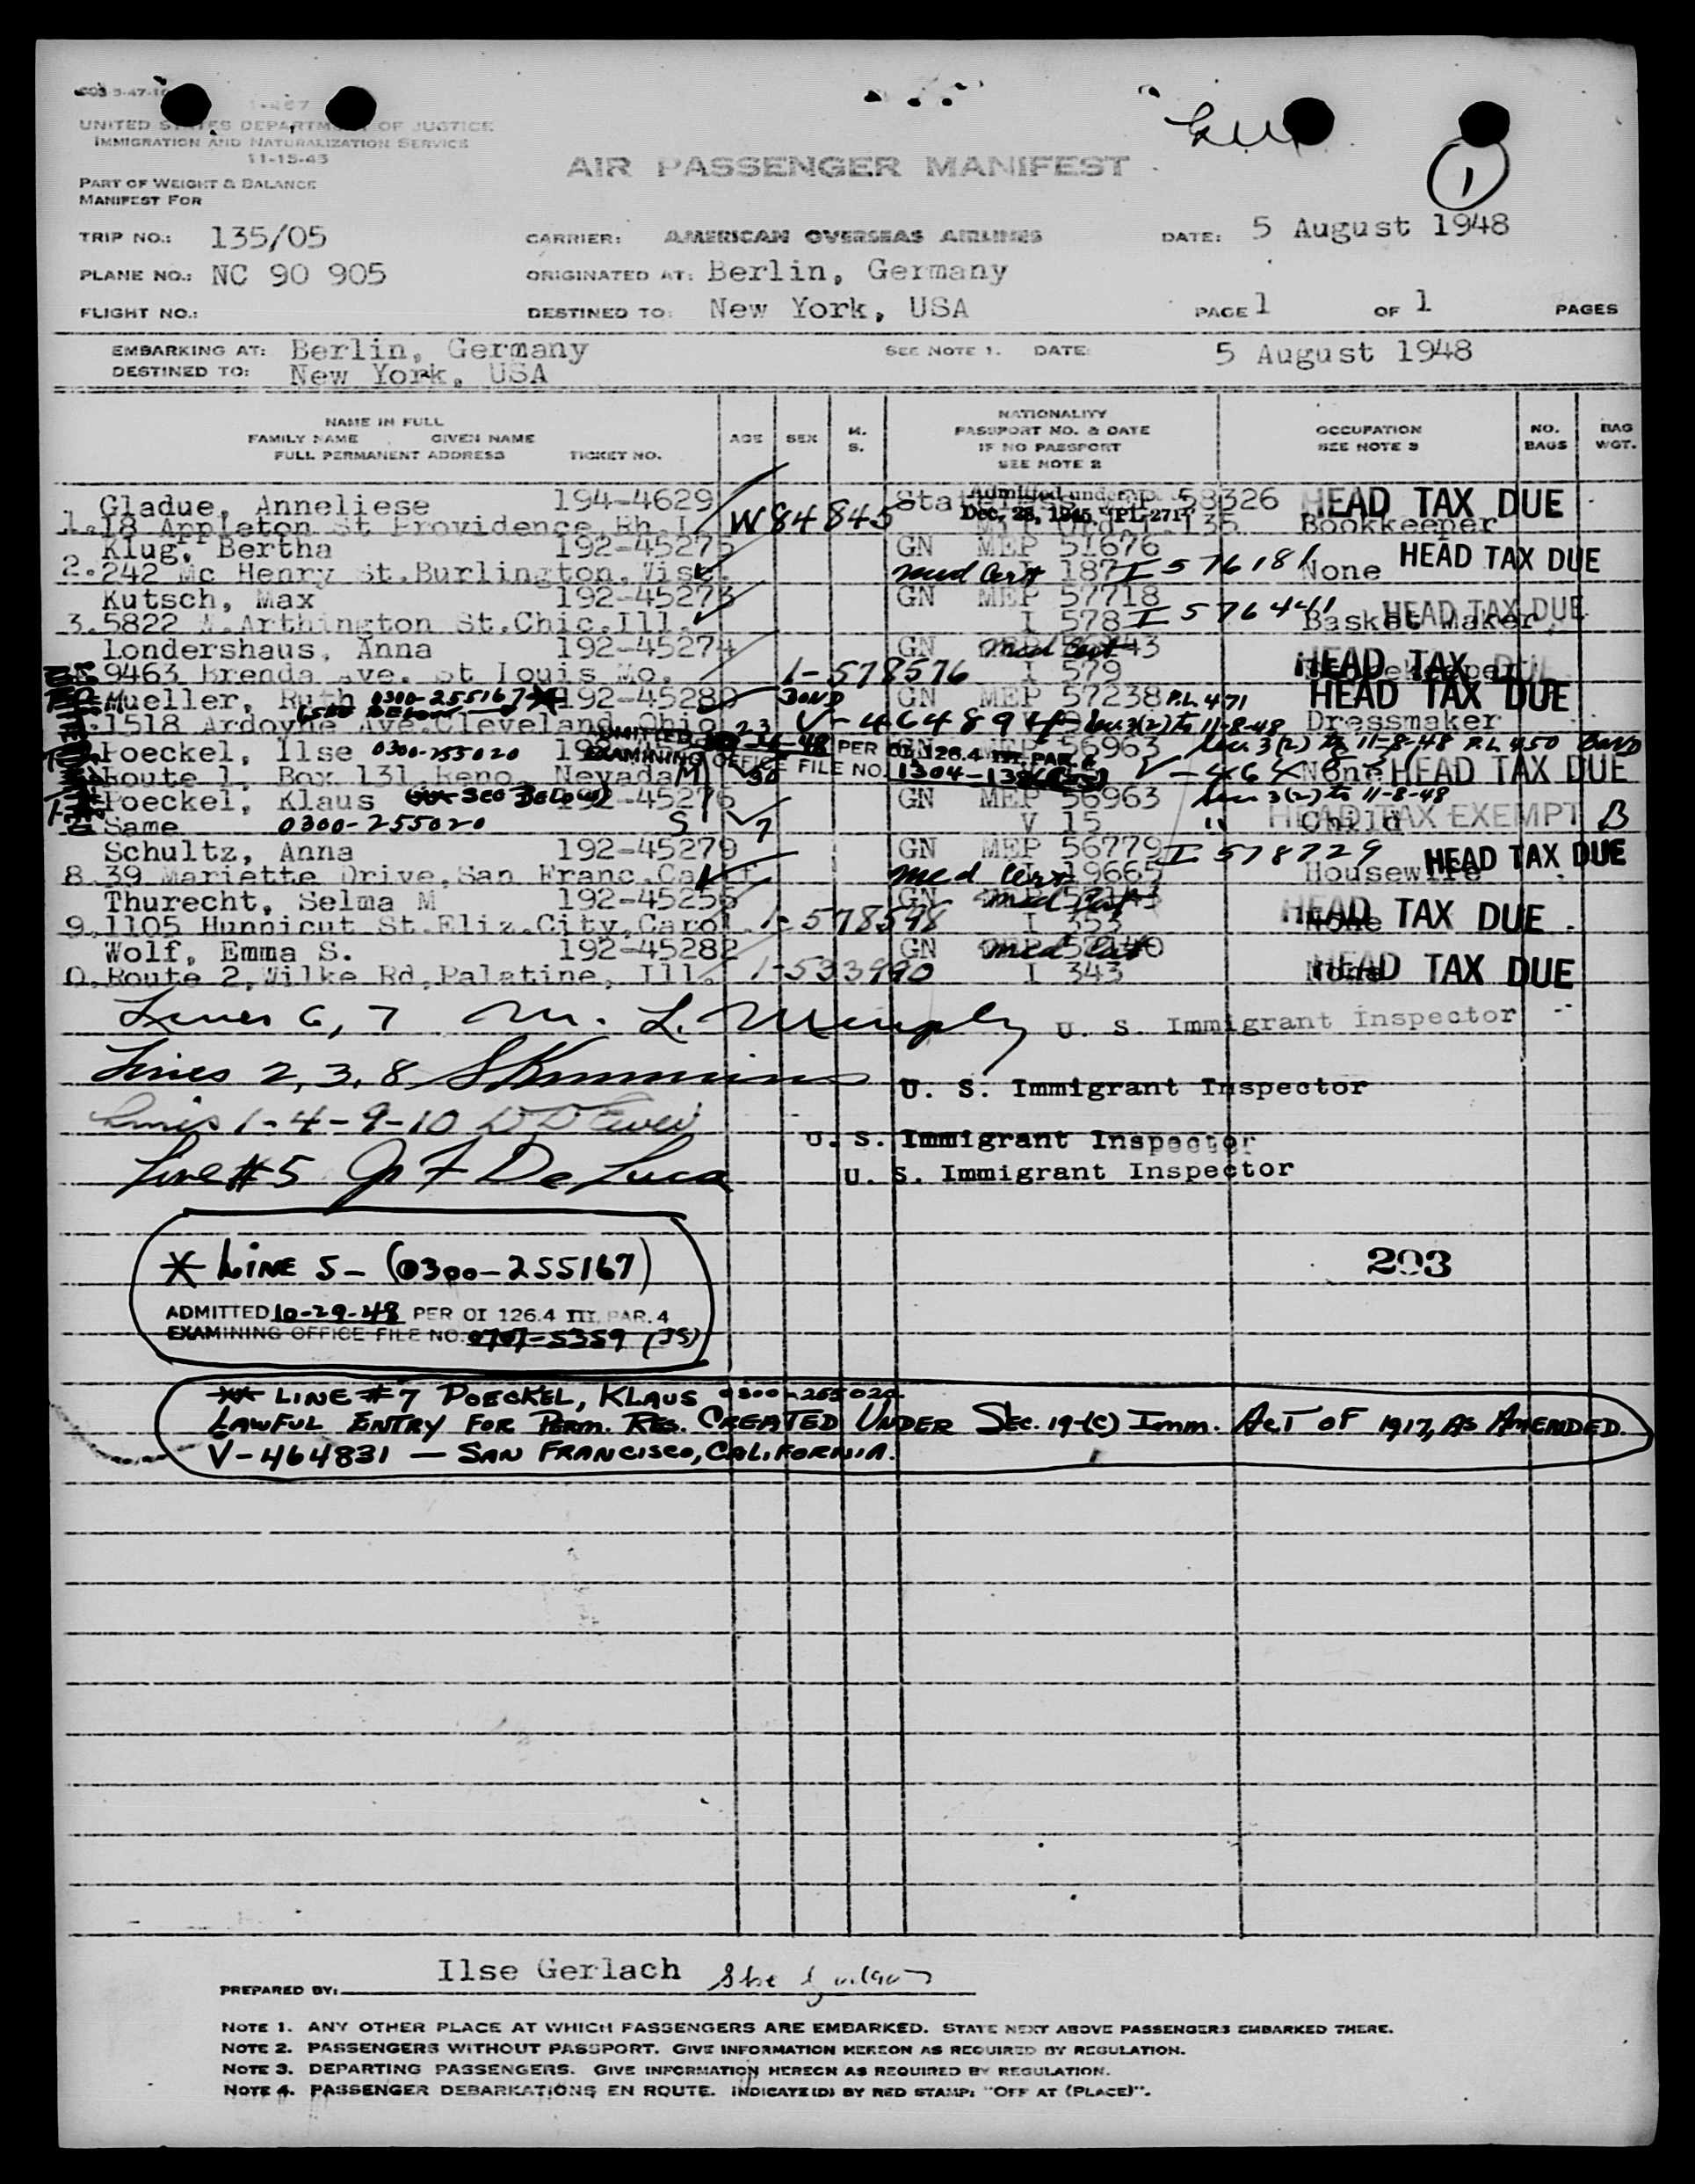 UNITED STATES DEPARTMENT OF JUSTICE
IMMIGRATION AND NATURALIZATION SERVICE
11-15-43
AIR PASSENGER MANIFEST
1
PART OF WEIGHT & BALANCE
MANIFEST FOR
TRIP NO.: 135/05 CARRIER: AMERICAN OVERSEAS AIRLINES DATE: 5 August 1948
PLANE NO.: NC 90 905 ORIGINATED AT: Berlin, Germany
FLIGHT NO.: DESTINED TO: New York, USA PAGE 1 OF 1 PAGES
EMBARKING AT: Berlin, Germany SEE NOTE 1. DATE: 5 August 1948
DESTINED TO: New York, USA
NAME IN FULL
FAMILY NAME GIVEN NAME
FULL PERMANENT ADDRESS TICKET NO.
AGE SEX M. S.
NATIONALITY
PASSPORT NO. & DATE
IF NO PASSPORT
SEE NOTE 2
OCCUPATION
SEE NOTE 3
NO. BAGS
BAG WGT.
Gladue, Anneliese 194-4629 Admitted under 58326 HEAD TAX DUE
1.18 Appleton St Providence, Rh.I. W84845 Dec. 28, 1945 (PL-271) Bookkeeper
Klug, Bertha 192-45275 GN MEP 51676 HEAD TAX DUE
2.242 Mc Henry St.Burlington, Wisc. med cert 187 I 576181 None
Kutsch, Max 192-45273 GN MEP 57718 HEAD TAX DUE
3.5822 W.Arthington St.Chic.Ill. I 578 I 576441 Basket Maker
Londershaus, Anna 192-45274 GN med cert
9463 Brenda Ave. St Louis Mo. 1-578576 I 579 HEAD TAX DUE
Mueller, Ruth 0300-255167 * 192-45280 BOND GN MEP 57238 P.L. 471 HEAD TAX DUE
1518 Ardoyne Ave.Cleveland, Ohio 23 Sec. 3(2) to 11-8-48 Dressmaker
Poeckel, Ilse 0300-255020 ADMITTED PER OI 126.4 III, PAR. 4 56963 Sec. 3(2) to 11-8-48 P.L. 450 BOND
Route 1, Box 131, Reno, Nevada M 30 EXAMINING OFFICE FILE NO. None HEAD TAX DUE
Poeckel, Klaus (** SEE BELOW) 192-45276 GN MEP 56963 Sec. 3(2) to 11-8-48
Same 0300-255020 S 7 V 15 " Child HEAD TAX EXEMPT B
Schultz, Anna 192-45279 GN MEP 56779 I 578729 HEAD TAX DUE
8.39 Mariette Drive, San Franc.Calif. med cert 19665 Housewife
Thurecht, Selma M 192-45256 GN med cert
9.1105 Hunnicut St.Eliz.City, Carol. 1-578598 I 353 None HEAD TAX DUE
Wolf, Emma S. 192-45282 GN med cert
0.Route 2, Wilke Rd, Palatine, Ill. 1-533990 I 343 None HEAD TAX DUE
Lines 6, 7 M. L. U. S. Immigrant Inspector
Lines 2, 3, 8 U. S. Immigrant Inspector
Lines 1-4-9-10 U. S. Immigrant Inspector
Line #5 De Luca U. S. Immigrant Inspector
* LINE 5- (0300-255167)
203
ADMITTED 10-29-48 PER OI 126.4 III, PAR. 4
EXAMINING OFFICE FILE NO. 0707-5359 (JS)
** LINE #7 POECKEL, KLAUS 0300-255020
LAWFUL ENTRY FOR PERM. RES. CREATED UNDER SEC. 19-(C) IMM. ACT OF 1917, AS AMENDED.
V-464831 — SAN FRANCISCO, CALIFORNIA.
PREPARED BY: Ilse Gerlach
NOTE 1. ANY OTHER PLACE AT WHICH PASSENGERS ARE EMBARKED. STATE NEXT ABOVE PASSENGERS EMBARKED THERE.
NOTE 2. PASSENGERS WITHOUT PASSPORT. GIVE INFORMATION HEREON AS REQUIRED BY REGULATION.
NOTE 3. DEPARTING PASSENGERS. GIVE INFORMATION HEREON AS REQUIRED BY REGULATION.
NOTE 4. PASSENGER DEBARKATIONS EN ROUTE. INDICATE(D) BY RED STAMP: "OFF AT (PLACE)".